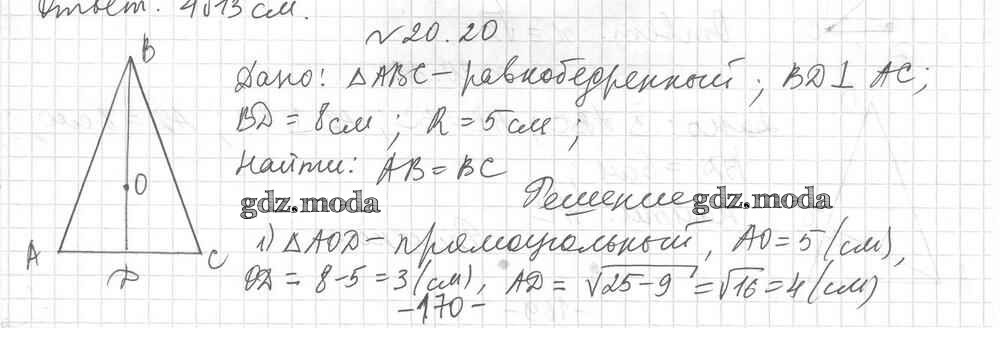 Ответ: 4√13 см.
№ 20.20
B
Дано: △ABC – равнобедренный; BD ⊥ AC;
BD = 8 см; R = 5 см;
Найти: AB = BC
O
Решение
gdz.moda gdz.moda
1) △AOD – прямоугольный, AO = 5 (см),
A
C
OD = 8 - 5 = 3 (см), AD = √25-9 = √16 = 4 (см)
D
-170-